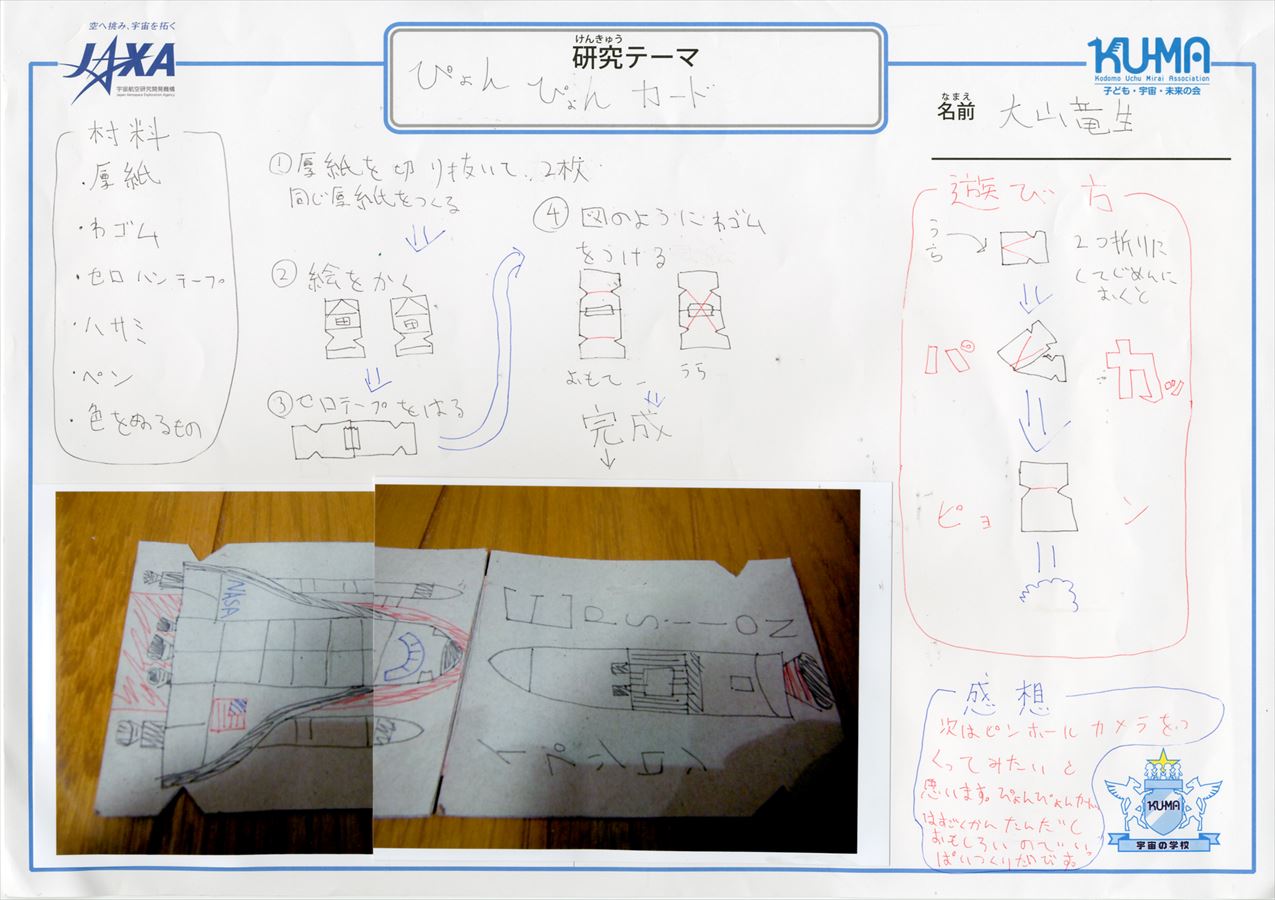 空へ挑み、宇宙を拓く
JAXA
宇宙航空研究開発機構
Japan Aerospace Exploration Agency
けんきゅう
研究テーマ
ぴょん ぴょん カード
KU-MA
Kodomo Uchu Mirai Association
子ども・宇宙・未来の会
なまえ
名前
大山竜生
材料
・厚紙
・わゴム
・セロハンテープ
・ハサミ
・ペン
・色をぬるもの
①厚紙を切り抜いて、2枚
同じ厚紙をつくる
②絵をかく
③セロテープをはる
④図のようにわゴム
をつける
おもて
うら
完成
遊び方
うち
2つ折りに
してじめんに
おくと
パ
カッ
ピョ
ン
NASA
EPSILON
イプシロン
感想
次はピンホールカメラをつ
くってみたいと
思います。ぴょんぴょんカード
はすごくかんたんだし
おもしろいのでいっ
ぱいつくりたいです。
KU-MA
宇宙の学校